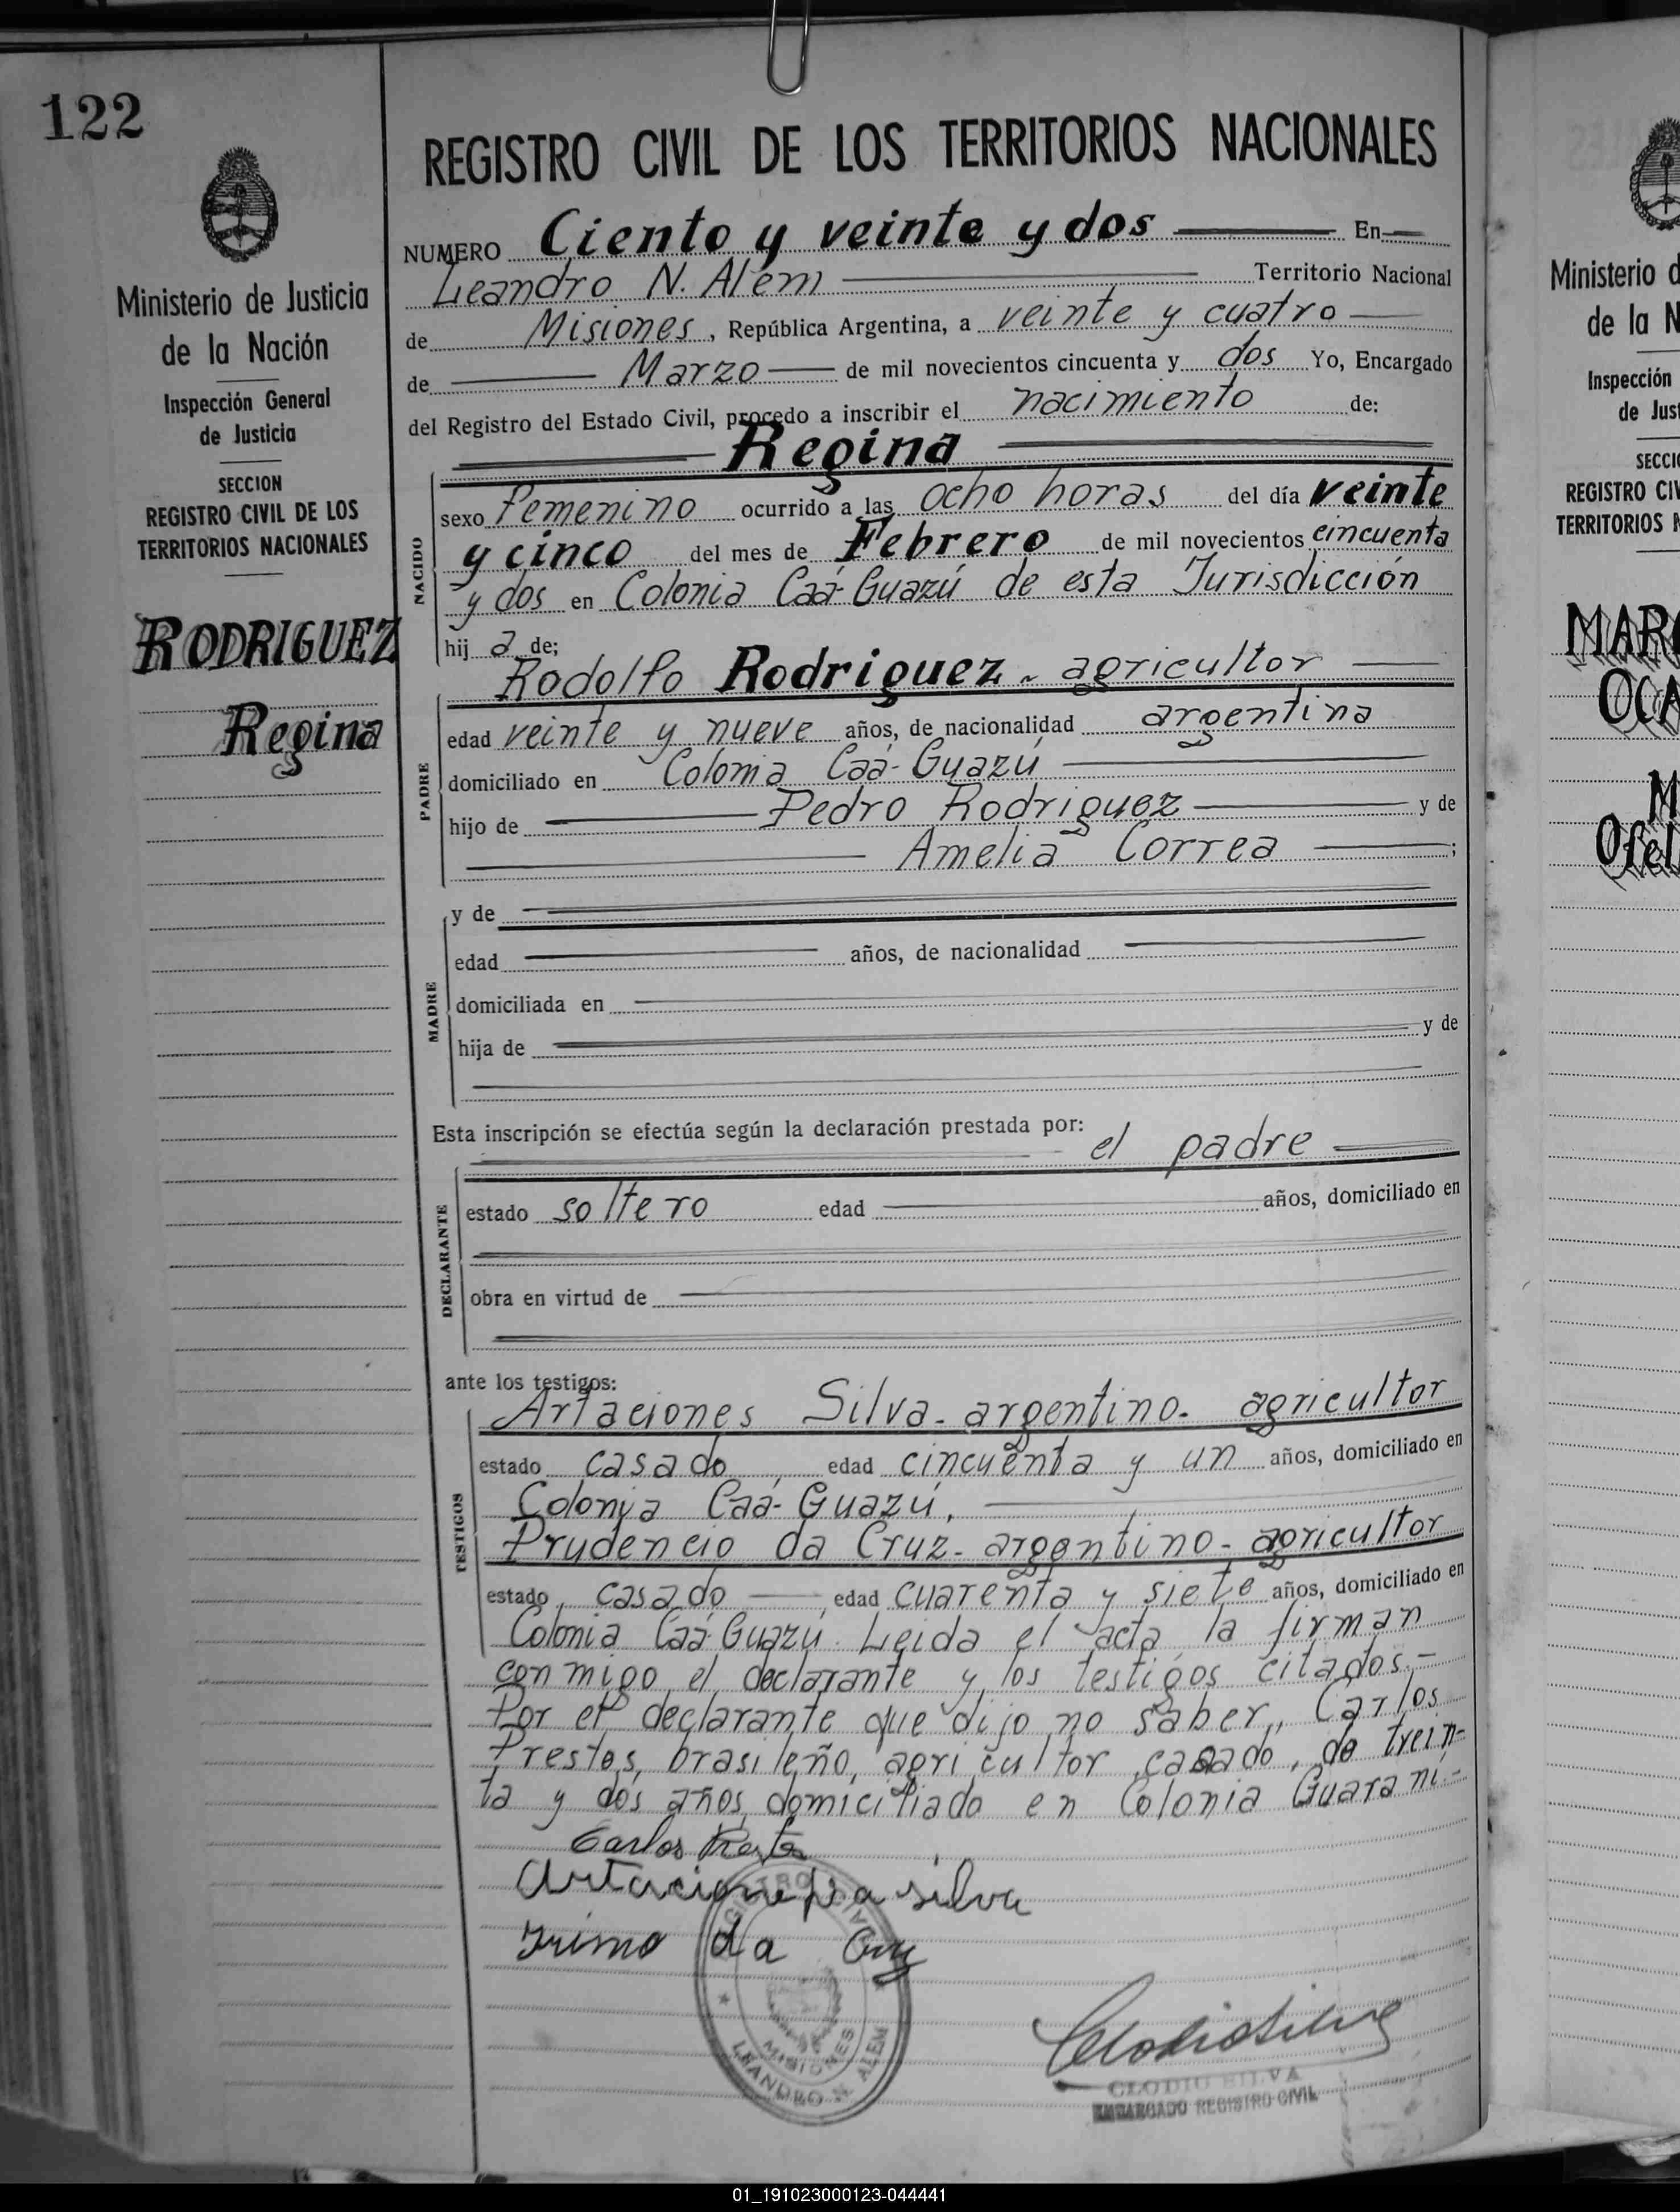 122
Ministerio de Justicia
de la Nación
Inspección General
de Justicia
SECCION
REGISTRO CIVIL DE LOS
TERRITORIOS NACIONALES
RODRIGUEZ
Regina
REGISTRO CIVIL DE LOS TERRITORIOS NACIONALES
NUMERO Ciento y veinte y dos En
Leandro N. Alem Territorio Nacional
de Misiones, República Argentina, a veinte y cuatro
de Marzo de mil novecientos cincuenta y dos Yo, Encargado
del Registro del Estado Civil, procedo a inscribir el nacimiento de:
Regina
NACIDO
sexo femenino ocurrido a las ocho horas del día veinte
y cinco del mes de Febrero de mil novecientos cincuenta
y dos en Colonia Caá-Guazú de esta Jurisdicción
hij a de;
Rodolfo Rodriguez - agricultor
PADRE
edad veinte y nueve años, de nacionalidad argentina
domiciliado en Colonia Caá-Guazú
hijo de Pedro Rodriguez y de
Amelia Correa ;
MADRE
y de
edad años, de nacionalidad
domiciliada en
hija de y de
Esta inscripción se efectúa según la declaración prestada por:
el padre
DECLARANTE
estado soltero edad años, domiciliado en
obra en virtud de
ante los testigos:
Artaciones Silva - argentino - agricultor
TESTIGOS
estado casado, edad cincuenta y un años, domiciliado en
Colonia Caá-Guazú.
Prudencio da Cruz - argentino - agricultor
estado casado, edad cuarenta y siete años, domiciliado en
Colonia Caá-Guazú. Leida el acta la firman
conmigo el declarante y los testigos citados.-
Por el declarante que dijo no saber, Carlos
Prestes, brasileño, agricultor, casado, de trein-
ta y dos años domiciliado en Colonia Guarani.-
Carlos
silva
da Cruz
REGISTRO CIVIL
MISIONES
LEANDRO N. ALEM
Clodio Silva
CLODIO SILVA
ENCARGADO REGISTRO CIVIL
Ministerio d
de la N
Inspección
de Jus
SECCI
REGISTRO CIV
TERRITORIOS N
MAR
OCA
M
Ofel
01_191023000123-044441